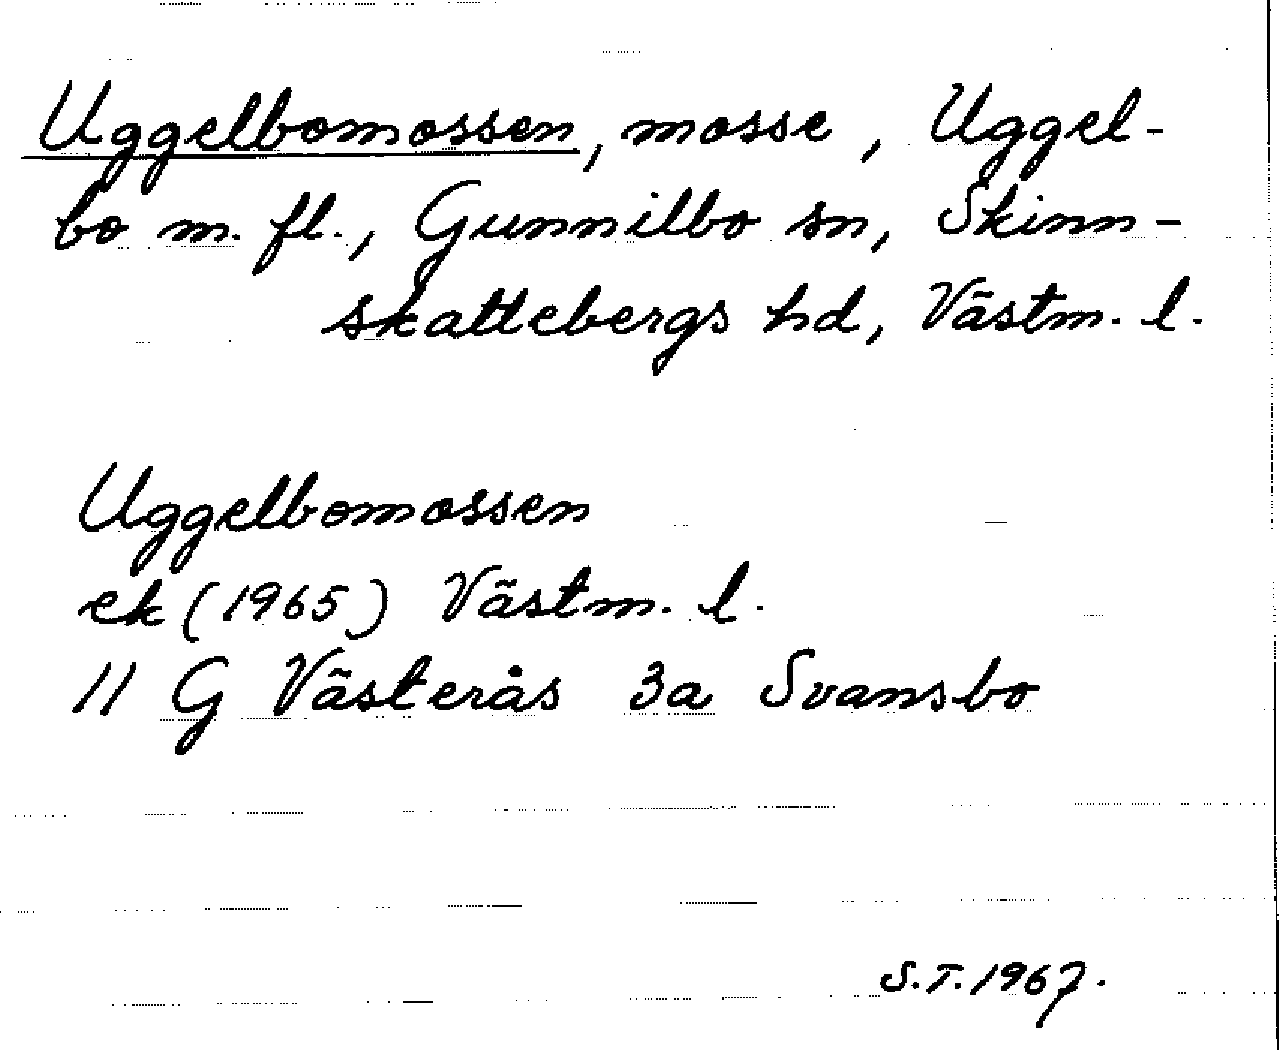 Uggelbomossen, mosse, Uggel-
bo m. fl., Gunnilbo sn, Skinn-
skattebergs hd, Västm. l.
Uggelbomossen
ek (1965) Västm. l.
11 G Västerås 3a Svansbo
S.T. 1967.